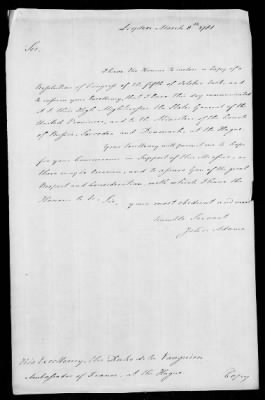 Leyden March 8th 1781
Sir,
I have the Honour to inclose a Copy of a
Resolution of Congress of the fifth of October last and to
inform your Excellency, that I have this day communicated
it to their High Mightinesses the States General of the
United Provinces, and to the Ministers of the Courts
of Russia, Sweden and Denmark, at the Hague.
Your Excellency will permit me to hope
for your Concurrence in Support of this Measure, as
there may be occasion, and to assure you of the great
Respect and Consideration with which I have the
Honour to be, Sir, your most obedient and most
humble Servant
John Adams
His Excellency, the Duke de la Vauguion
Ambassador of France, at the Hague.
Copy